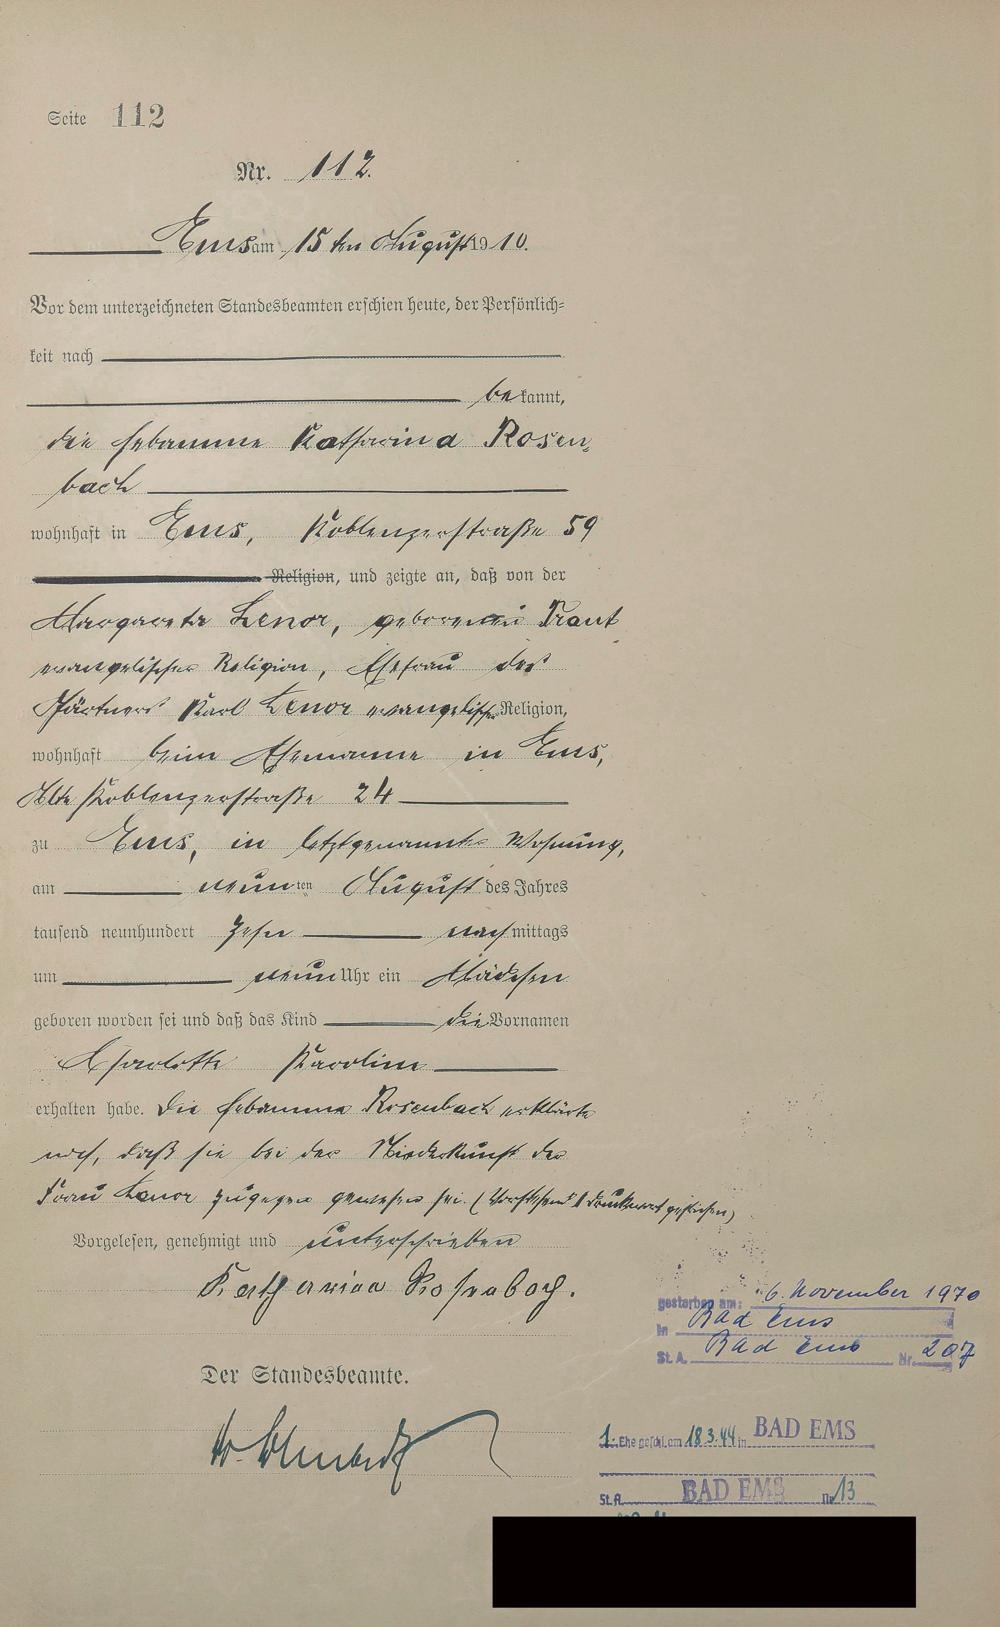 Seite 112
Nr. 112.
Ems am 15 ten August 1910.
Vor dem unterzeichneten Standesbeamten erschien heute, der Persönlich=
keit nach
bekannt,
die Hebamme Katharina Rosen-
bach
wohnhaft in Ems, Koblenzerstraße 59
Religion, und zeigte an, daß von der
Margareta Lenor, geborenen Traut
evangelischer Religion, Ehefrau des
Gärtners Karl Lenor evangelischer Religion,
wohnhaft beim Ehemanne in Ems,
Alte Koblenzerstraße 24
zu Ems, in letztgenannter Wohnung,
am neunten August des Jahres
tausend neunhundert zehn nachmittags
um neun Uhr ein Mädchen
geboren worden sei und daß das Kind die Vornamen
Charlotte Karoline
erhalten habe. Die Hebamme Rosenbach erklärte
noch, daß sie bei der Niederkunft der
Frau Lenor zugegen gewesen sei. (Vorstehend 1 Druckwort gestrichen)
Vorgelesen, genehmigt und unterschrieben
Katharina Rosenbach.
gestorben am: 6. November 1970
in Bad Ems
St. A. Bad Ems Nr. 207
Der Standesbeamte.
1. Ehe geschl. am 18.3.44 in BAD EMS
St. A. BAD EMS Nr. 13